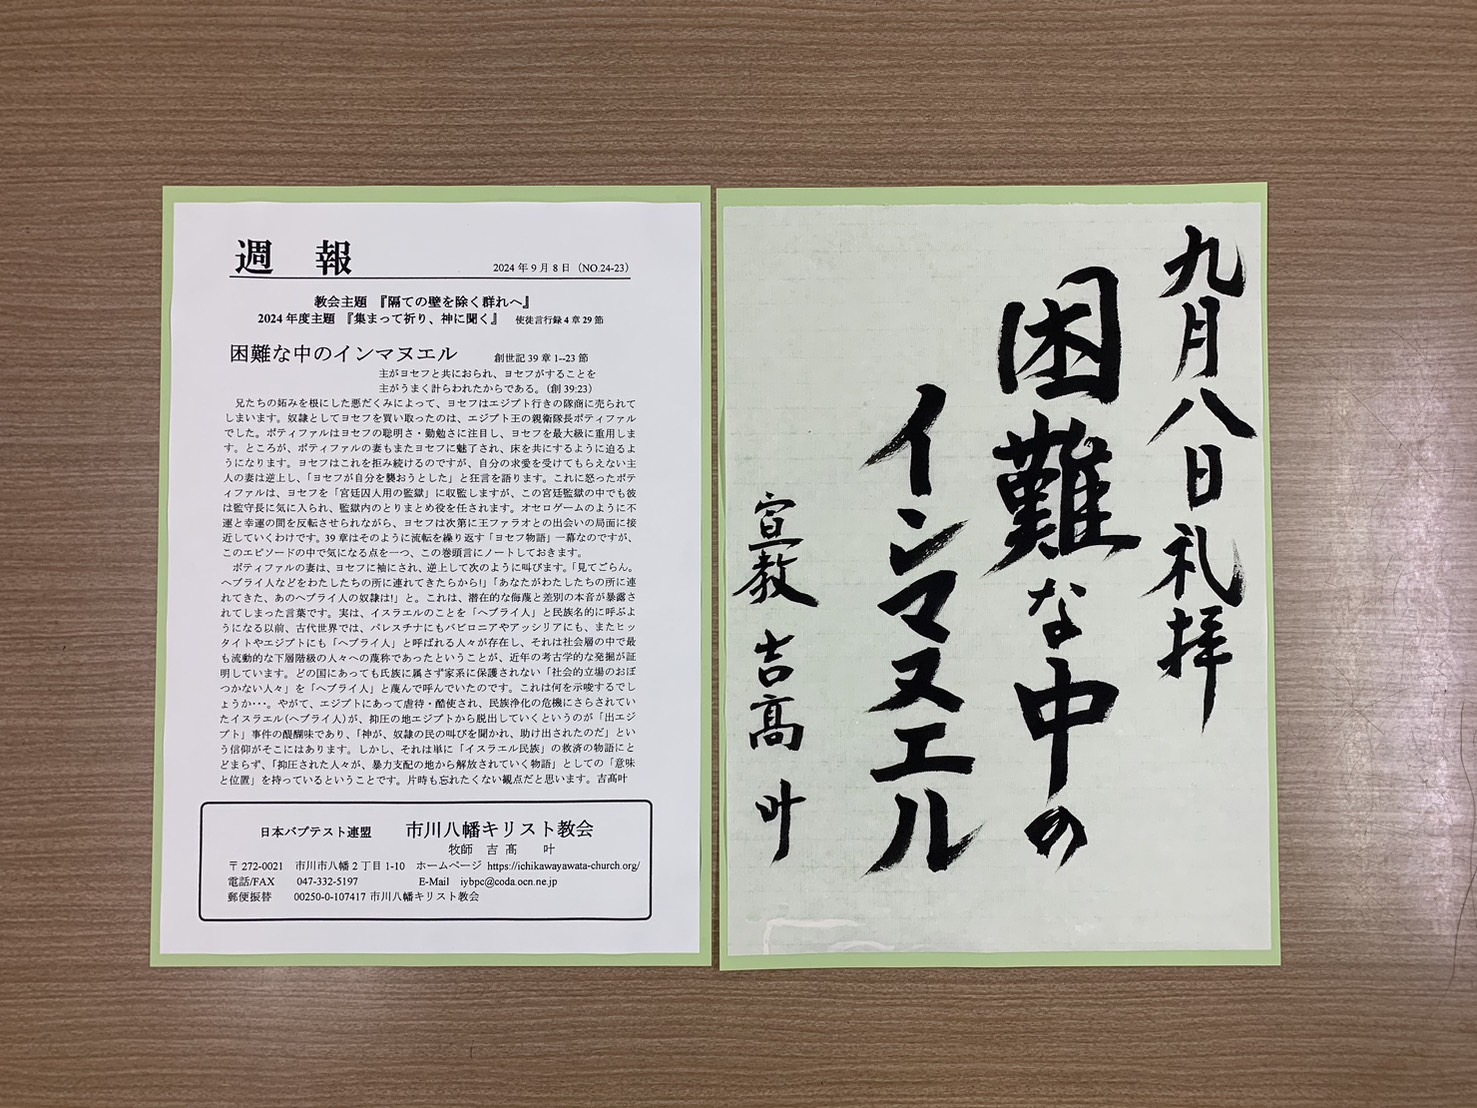 週　報
2024年9月8日（NO.24-23）
教会主題　『隔ての壁を除く群れへ』
2024年度主題　『集まって祈り、神に聞く』　使徒言行録4章29節
困難な中のインマヌエル　創世記39章1--23節
主がヨセフと共におられ、ヨセフがすることを
主がうまく計らわれたからである。（創39:23）
兄たちの妬みを根にした悪だくみによって、ヨセフはエジプト行きの隊商に売られて
しまいます。奴隷としてヨセフを買い取ったのは、エジプト王の親衛隊長ポティファル
でした。ポティファルはヨセフの聡明さ・勤勉さに注目し、ヨセフを最大級に重用しま
す。ところが、ポティファルの妻もまたヨセフに魅了され、床を共にするように迫るよ
うになります。ヨセフはこれを拒み続けるのですが、自分の求愛を受けてもらえない主
人の妻は逆上し、「ヨセフが自分を襲おうとした」と狂言を語ります。これに怒ったポテ
ィファルは、ヨセフを「宮廷囚人用の監獄」に収監しますが、この宮廷監獄の中でも彼
は監守長に気に入られ、監獄内のとりまとめ役を任されます。オセロゲームのように不
運と幸運の間を反転させられながら、ヨセフは次第に王ファラオとの出会いの局面に接
近していくわけです。39章はそのように流転を繰り返す「ヨセフ物語」一幕なのですが、
このエピソードの中で気になる点を一つ、この巻頭言にノートしておきます。
ポティファルの妻は、ヨセフに袖にされ、逆上して次のように叫びます。「見てごらん。
ヘブライ人などをわたしたちの所に連れてきたらから!」「あなたがわたしたちの所に連
れてきた、あのヘブライ人の奴隷は!」と。これは、潜在的な侮蔑と差別の本音が暴露さ
れてしまった言葉です。実は、イスラエルのことを「ヘブライ人」と民族名的に呼ぶよ
うになる以前、古代世界では、パレスチナにもバビロニアやアッシリアにも、またヒッ
タイトやエジプトにも「ヘブライ人」と呼ばれる人々が存在し、それは社会層の中で最
も流動的な下層階級の人々への蔑称であったということが、近年の考古学的な発掘が証
明しています。どの国にあっても氏族に属さず家系に保護されない「社会的立場のおぼ
つかない人々」を「ヘブライ人」と蔑んで呼んでいたのです。これは何を示唆するでし
ょうか・・・。やがて、エジプトにあって虐待・酷使され、民族浄化の危機にさらされてい
たイスラエル(ヘブライ人)が、抑圧の地エジプトから脱出していくというのが「出エジ
プト」事件の醍醐味であり、「神が、奴隷の民の叫びを聞かれ、助け出されたのだ」とい
う信仰がそこにはあります。しかし、それは単に「イスラエル民族」の救済の物語にと
どまらず、「抑圧された人々が、暴力支配の地から解放されていく物語」としての「意味
と位置」を持っているということです。片時も忘れたくない観点だと思います。吉髙叶
日本バプテスト連盟　市川八幡キリスト教会
牧師　吉髙　叶
〒272-0021　市川市八幡2丁目1-10　ホームページ https://ichikawayawata-church.org/
電話/FAX　047-332-5197　E-Mail　iybpc@coda.ocn.ne.jp
郵便振替　00250-0-107417 市川八幡キリスト教会
九月八日礼拝
困難な中の
インマヌエル
宣教 吉髙 叶